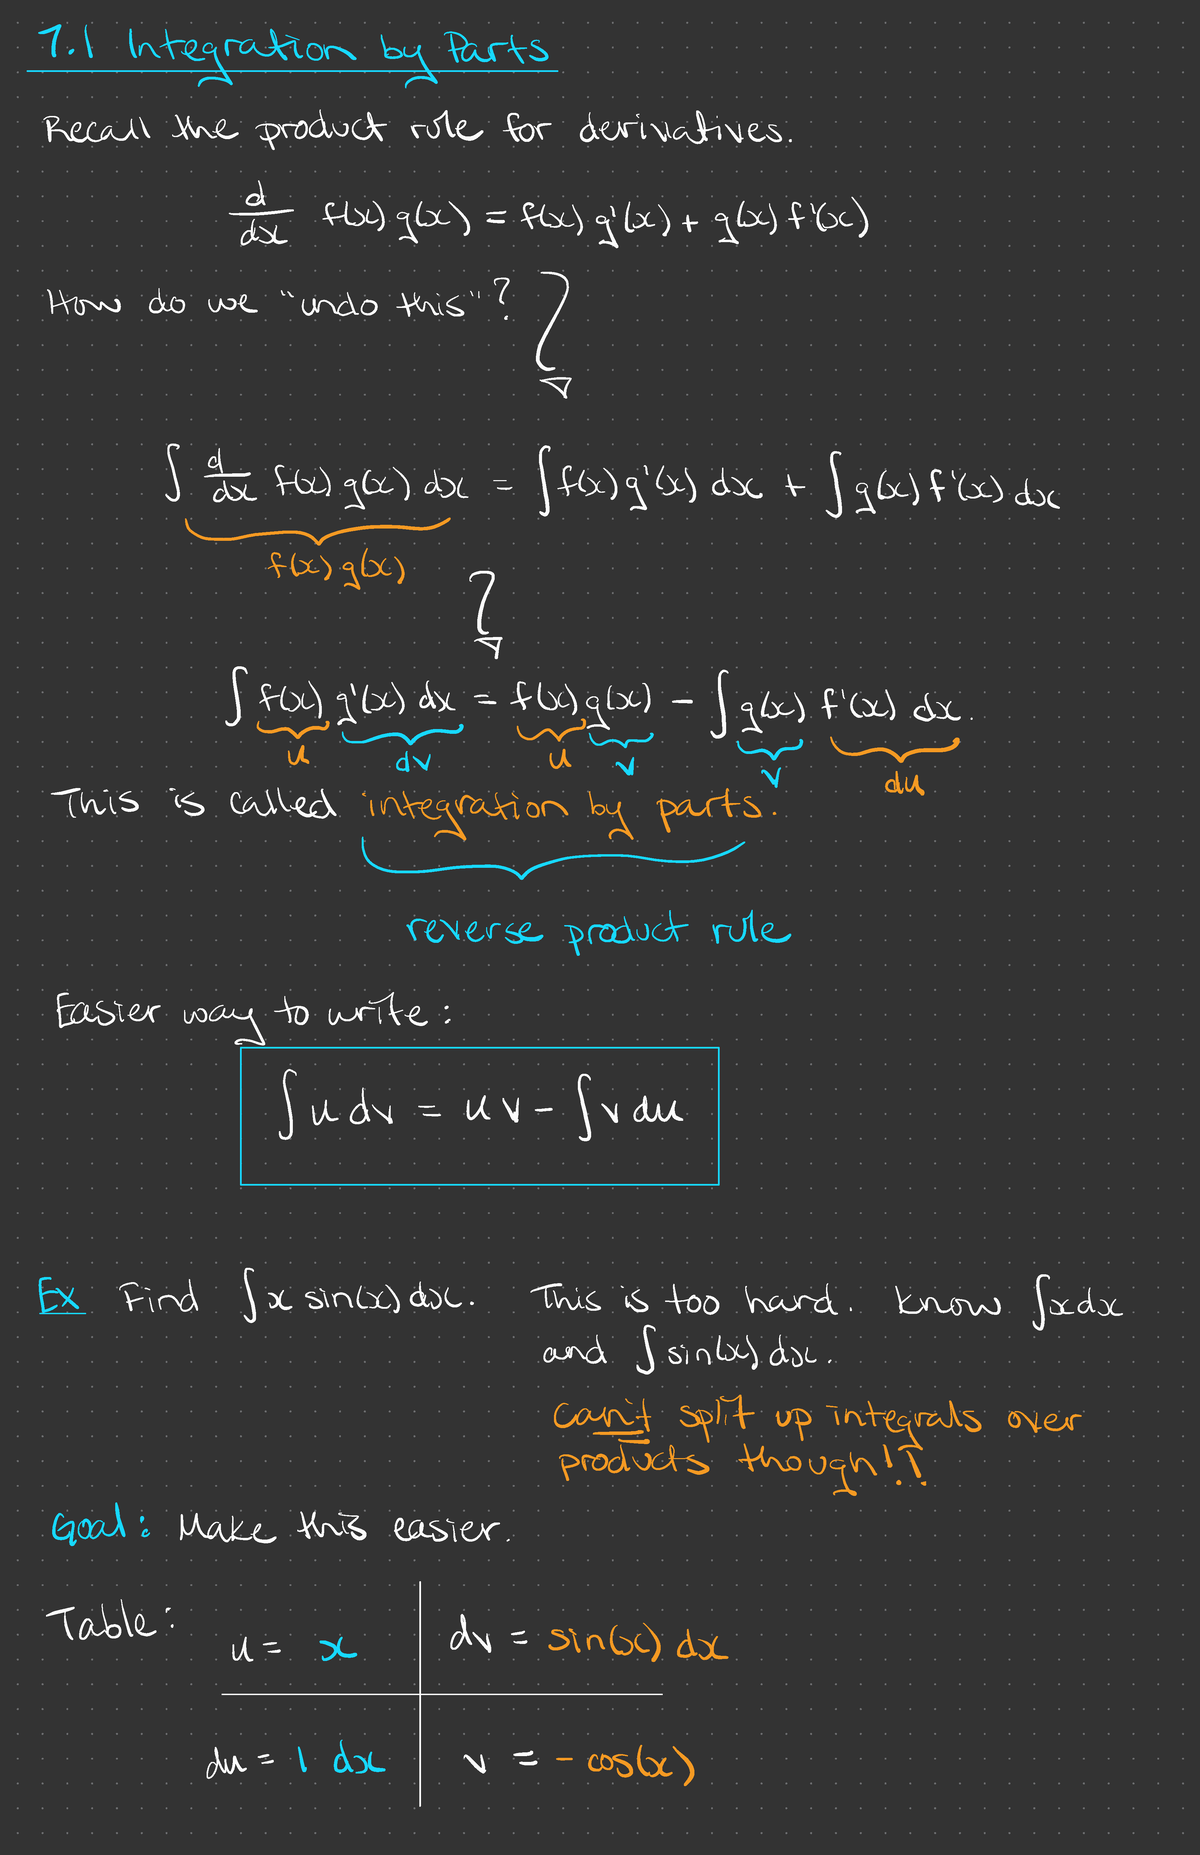 7.1 Integration by Parts
Recall the product rule for derivatives.
d/dx f(x) g(x) = f(x) g'(x) + g(x) f'(x)
How do we "undo this"?
∫ d/dx f(x) g(x) dx = ∫ f(x) g'(x) dx + ∫ g(x) f'(x) dx
f(x) g(x)
∫ f(x) g'(x) dx = f(x) g(x) - ∫ g(x) f'(x) dx.
u dv u v v du
This is called integration by parts.
reverse product rule
Easier way to write:
∫ u dv = u v - ∫ v du
Ex Find ∫ x sin(x) dx. This is too hard. Know ∫ x dx
and ∫ sin(x) dx.
can't split up integrals over
products though!!
Goal: Make this easier.
Table:
u = x dv = sin(x) dx
du = 1 dx v = - cos(x)